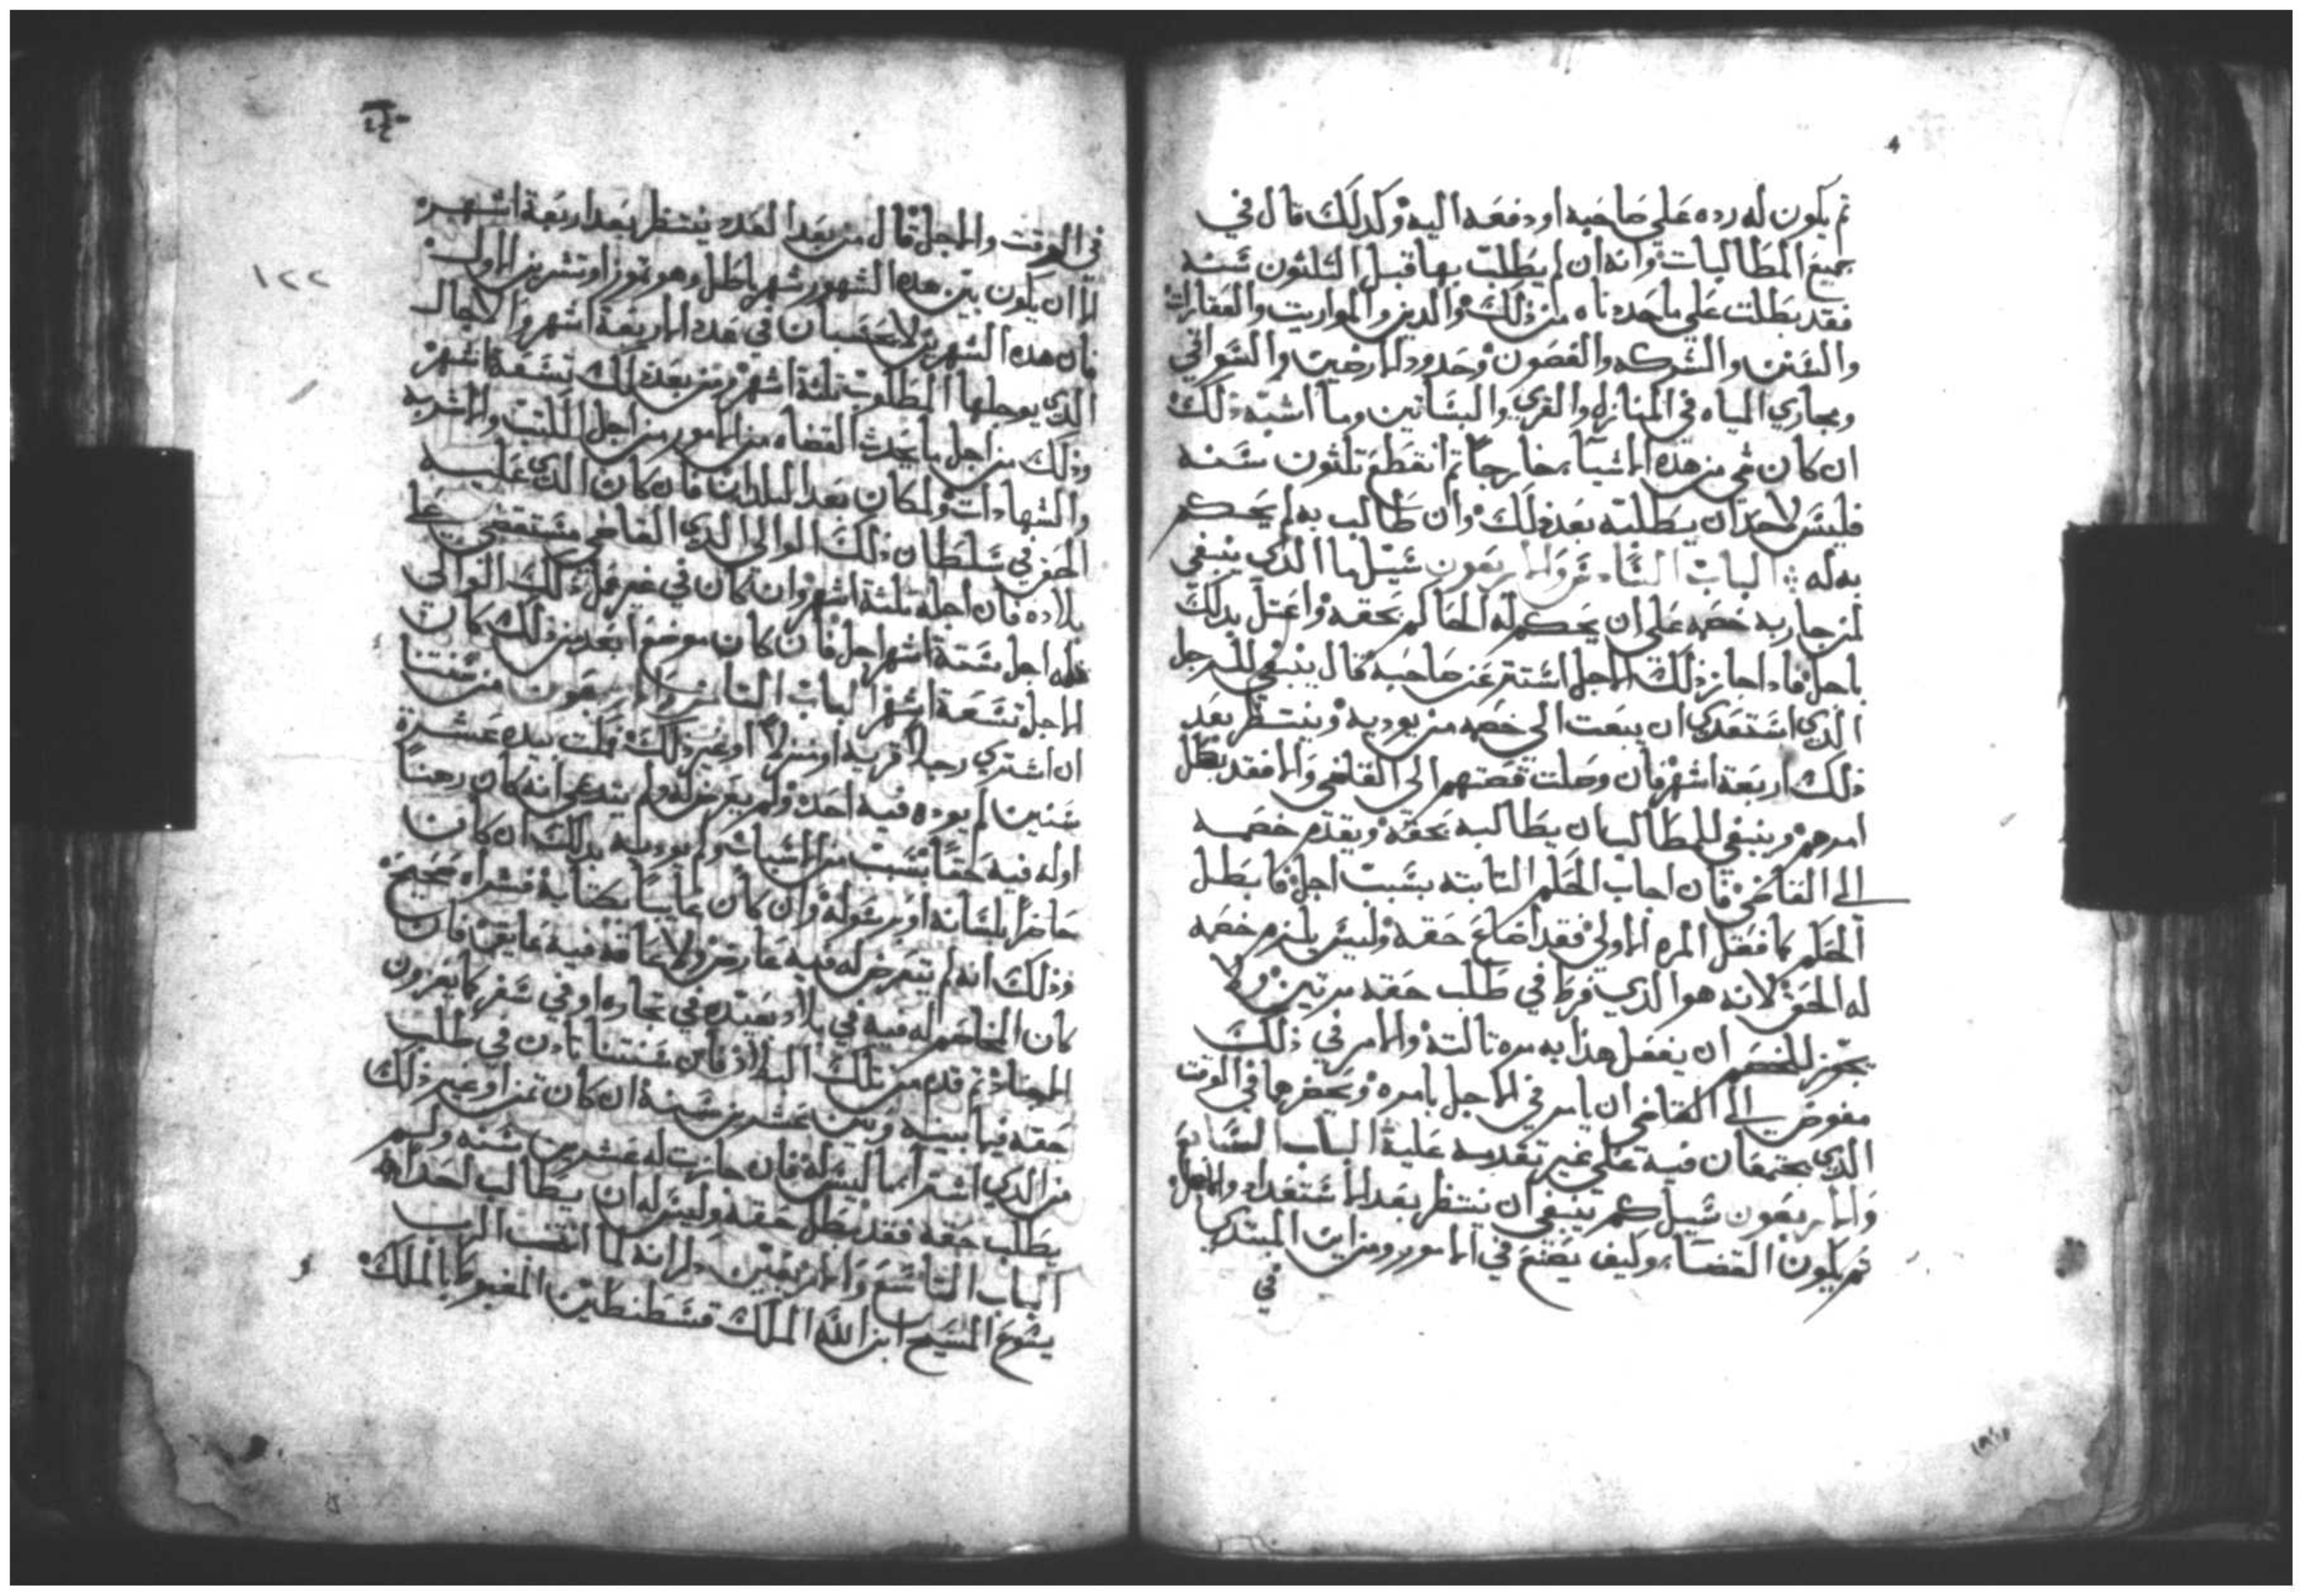 ثم يكون له رده علي صاحبه او دفعه اليه وكدلك قال في
جميع المطالبات وانه ان لم يطلب بها قبل الثلثون سنه
فقد بطلت علي ما حددناه من ذلك والدين والمواريت والعقارات
والسفن والشركه والغصون وحدود الارضين والسواقي
ومجاري المياه في المنازل والقري والبساتين وما اشبه ذلك
ان كان شي من هذه الاشيا خارجا ثم انقطع تلثون سنه
فليس لاحد ان يطلبه بعد ذلك وان طالب به لم يحكم
به له الباب السادس والاربعون سيل ما الذي ينبغي
لمن جاز به خصمه علي ان يحكم له الحاكم بحقه واعتل بدلك
باجل فاداجاز ذلك الاجل استتر عن صاحبه قال ينبغي للرجل
الذي استعدي ان يبعت الي خصمه من يوديه وينتظر بعد
ذلك اربعة اشهر فان وصلت قصتهم الي القاضي والا فقد بطل
امرهم وينبغي للمطالب ان يطالبه بحقه ويقدم خصمه
الي القاضي فان اجاب الحكم التابته بسبب اجل فابطل
الحكم كما فعل المره الاولي فقد اضاع حقه وليس يلزم خصمه
له الحق لانه هو الذي فرط في طلب حقه مرتين ولا
يجوز للخصم ان يفعل هذا به مره تالتة والامر في ذلك
مفوض الي القاضي ان يامر في الاجل بامره ويحضرهما في الوقت
الذي يجتمعان فيه علي غير تقدمه عليه الباب السابع
والاربعون سيل كم ينبغي ان ينتظر بعد الاستعداد والاجل
ثم يكون القضا وكيف يصنع في الامور ومن اين المبتدي
في
١٢٢
في الوقت والاجل قال من بعد العدد ينتظر بعد اربعة اشهر
الا ان يكون بين هده الشهور شهر باطل وهو تموز او تشرين الاول
فان هده الشهرين لا يحتسبان في هده الاربعة اشهر والاجال
الذي يوجلها المطلوب تلثة اشهر ومن بعد ذلك تسعة اشهر
وذلك من اجل ما يحدث القضاه من الامور من اجل الكتب والاشربه
والشهادات ولمكان بعد البلدان فان كان الذي عليه
الحق في سلطان ذلك الوالي الذي القاضي مستقضي علي
بلاده فان اجله تلثة اشهر وان كان في غير عمل ذلك الوالي
فله اجل ستة اشهر اجل فان كان موضع ابعد من ذلك كان
الاجل تسعة اشهر الباب التامن والاربعون من سنتنا
ان اشتري رجلا قريه او منزلا او غير ذلك فمكث بيده عشرة
سنين لم يوده فيه احد ولم يعرض له ولم يتدعي انه كان رهنا
او له فيه حقا بسبب من الاسباب ولم يوديه بدلك ان كان
حاضرا بلسانه او برسوله وان كان غايبا بكتابه فشراه صحيح
وذلك انه لم يتعرض له فيه عارض ولا عاقه فيه عايق فان
كان المخاصم له فيه في بلاد بعيده في تجاره او في سفر كما يغزون
الاجناد ثم قدم من تلك البلاد فان سنتنا تادن في طلب
حقه فيما بينه وبين عشرين سنة ان كان ثمن او غير ذلك
من الذي اشترا بما ليس له فان جازت له عشرين سنه ولم
يطلب حقه فقد بطل حقه وليس له ان يطالب احدا به
الباب التاسع والاربعين
يشوع المسيح ابن الله الملك قسطنطين المغبوط بالملك